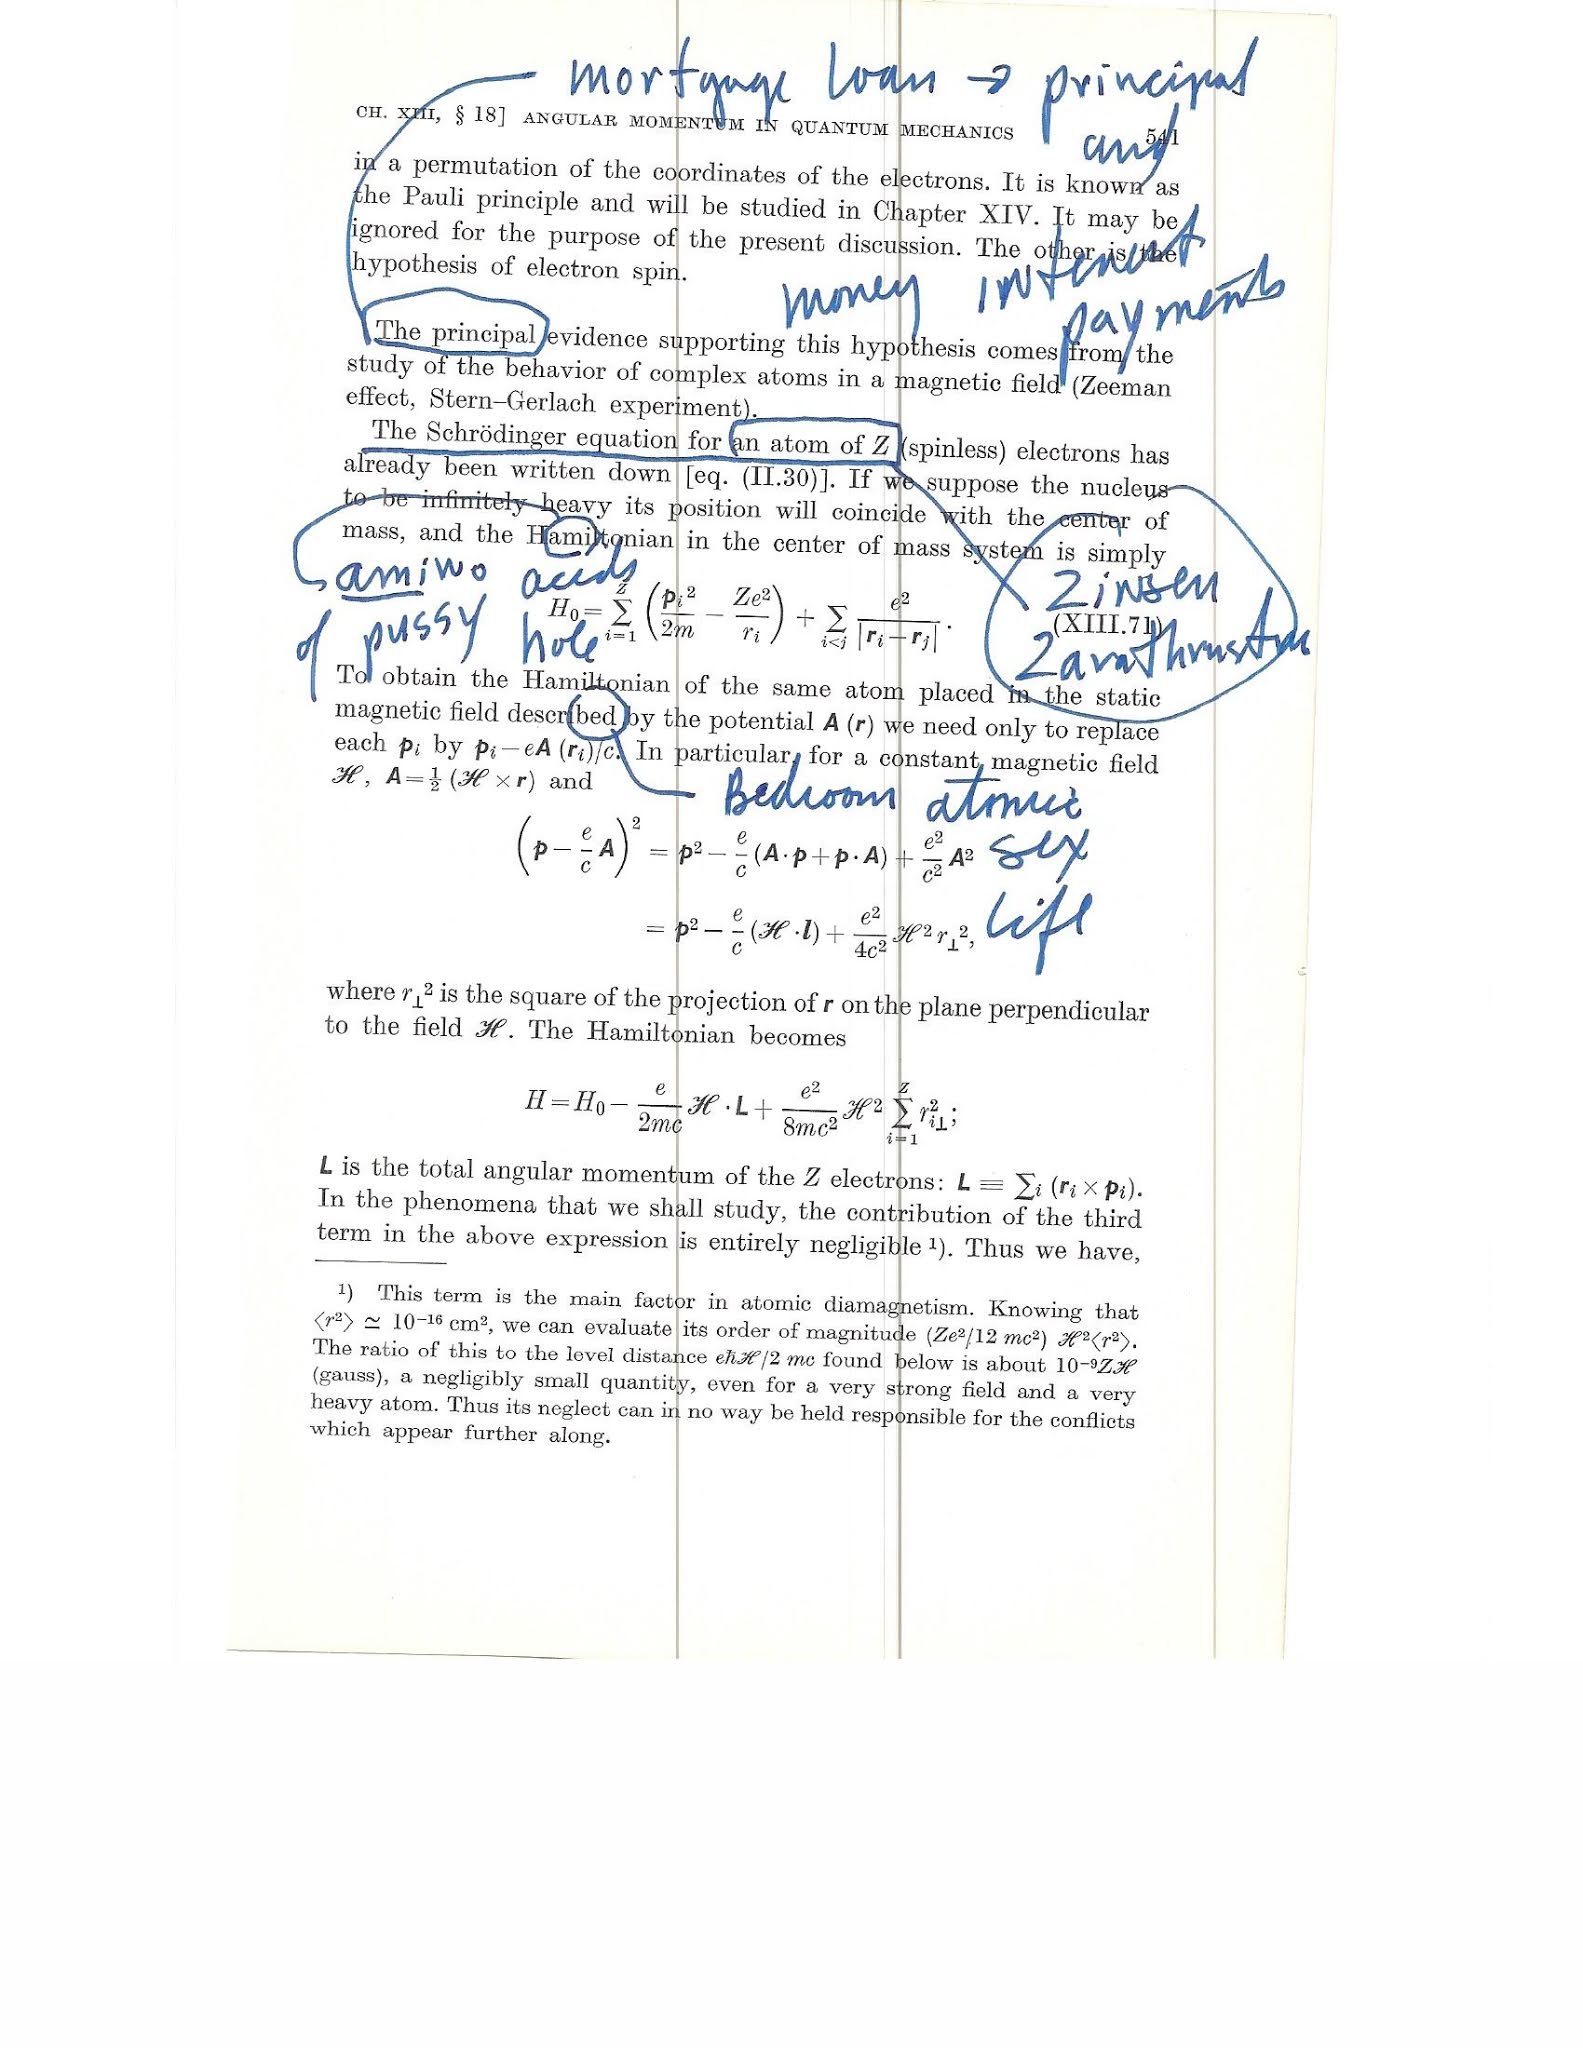 mortgage loan → principal
and
money interest
payments
CH. XIII, § 18] ANGULAR MOMENTUM IN QUANTUM MECHANICS 541
in a permutation of the coordinates of the electrons. It is known as
the Pauli principle and will be studied in Chapter XIV. It may be
ignored for the purpose of the present discussion. The other is the
hypothesis of electron spin.
The principal evidence supporting this hypothesis comes from the
study of the behavior of complex atoms in a magnetic field (Zeeman
effect, Stern–Gerlach experiment).
The Schrödinger equation for an atom of Z (spinless) electrons has
already been written down [eq. (II.30)]. If we suppose the nucleus
to be infinitely heavy its position will coincide with the center of
mass, and the Hamiltonian in the center of mass system is simply
amino acids
of pussy hole
Zinsen
Zarathrustra
H₀ = ∑_{i=1}^{Z} (pᵢ²/2m − Ze²/rᵢ) + ∑_{i<j} e²/|rᵢ−rⱼ|. (XIII.71)
To obtain the Hamiltonian of the same atom placed in the static
magnetic field described by the potential A (r) we need only to replace
each pᵢ by pᵢ−eA (rᵢ)/c. In particular, for a constant magnetic field
ℋ, A=½ (ℋ × r) and
Bedroom atomic
sex
life
(p − e/c A)² = p² − e/c (A·p+p·A) + e²/c² A²
= p² − e/c (ℋ·l) + e²/4c² ℋ² r⊥²,
where r⊥² is the square of the projection of r on the plane perpendicular
to the field ℋ. The Hamiltonian becomes
H=H₀− e/2mc ℋ·L+ e²/8mc² ℋ² ∑_{i=1}^{Z} r²ᵢ⊥;
L is the total angular momentum of the Z electrons: L ≡ ∑ᵢ (rᵢ × pᵢ).
In the phenomena that we shall study, the contribution of the third
term in the above expression is entirely negligible ¹). Thus we have,
¹) This term is the main factor in atomic diamagnetism. Knowing that
⟨r²⟩ ≃ 10⁻¹⁶ cm², we can evaluate its order of magnitude (Ze²/12 mc²) ℋ²⟨r²⟩.
The ratio of this to the level distance eħℋ/2 mc found below is about 10⁻⁹Zℋ
(gauss), a negligibly small quantity, even for a very strong field and a very
heavy atom. Thus its neglect can in no way be held responsible for the conflicts
which appear further along.